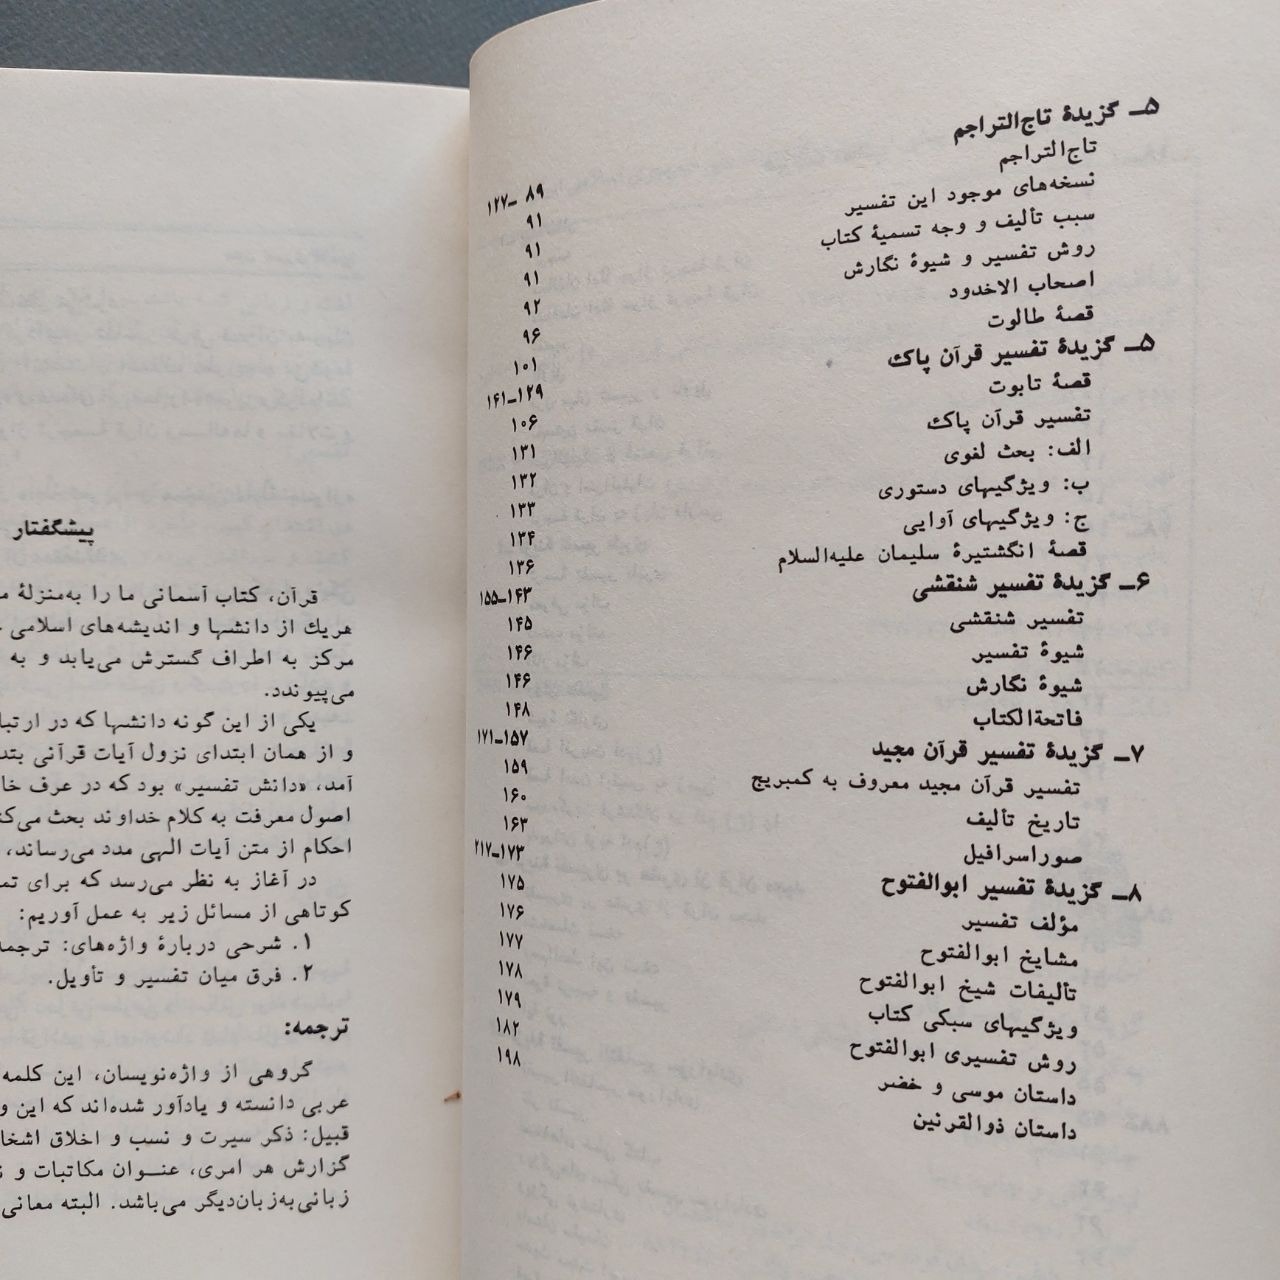 ۵ــ گزیدهٔ تاج‌التراجم ۸۹ ــ۱۲۷
تاج‌التراجم ۹۱
نسخه‌های موجود این تفسیر ۹۱
سبب تألیف و وجه تسمیهٔ کتاب ۹۱
روش تفسیر و شیوهٔ نگارش ۹۲
اصحاب الاخدود ۹۶
قصهٔ طالوت ۱۰۱
۵ــ گزیدهٔ تفسیر قرآن پاك ۱۲۹ــ۱۴۱
قصهٔ تابوت ۱۰۶
تفسیر قرآن پاك ۱۳۱
الف: بحث لغوی ۱۳۲
ب: ویژگیهای دستوری ۱۳۳
ج: ویژگیهای آوایی ۱۳۴
قصهٔ انگشتیرهٔ سلیمان علیه‌السلام ۱۳۶
۶ــ گزیدهٔ تفسیر شنقشی ۱۴۳ــ۱۵۵
تفسیر شنقشی ۱۴۵
شیوهٔ تفسیر ۱۴۶
شیوهٔ نگارش ۱۴۶
فاتحة‌الکتاب ۱۴۸
۷ــ گزیدهٔ تفسیر قرآن مجید ۱۵۷ــ۱۷۱
تفسیر قرآن مجید معروف به کمبریج ۱۵۹
تاریخ تألیف ۱۶۰
صوراسرافیل ۱۶۳
۸ــ گزیدهٔ تفسیر ابوالفتوح ۱۷۳ــ۲۱۷
مؤلف تفسیر ۱۷۵
مشایخ ابوالفتوح ۱۷۶
تألیفات شیخ ابوالفتوح ۱۷۷
ویژگیهای سبکی کتاب ۱۷۸
روش تفسیری ابوالفتوح ۱۷۹
داستان موسی و خضر ۱۸۲
داستان ذوالقرنین ۱۹۸
پیشگفتار
قرآن، کتاب آسمانی ما را به‌منزلهٔ
هریك از دانشها و اندیشه‌های اسلامی
مرکز به اطراف گسترش می‌یابد و به
می‌پیوندد.
یکی از این گونه دانشها که در
و از همان ابتدای نزول آیات قرآنی
آمد، «دانش تفسیر» بود که در عرف
اصول معرفت به کلام خداوند بحث
احکام از متن آیات الهی مدد می‌رساند،
در آغاز به نظر می‌رسد که برای
کوتاهی از مسائل زیر به عمل آوریم:
۱. شرحی دربارهٔ واژه‌های: ترجمه
۲. فرق میان تفسیر و تأویل.
ترجمه:
گروهی از واژه‌نویسان، این کلمه
عربی دانسته و یادآور شده‌اند که این
قبیل: ذکر سیرت و نسب و اخلاق
گزارش هر امری، عنـــوان مکاتبات و
زبانی‌به‌زبان‌دیگر می‌باشد. البته معانی